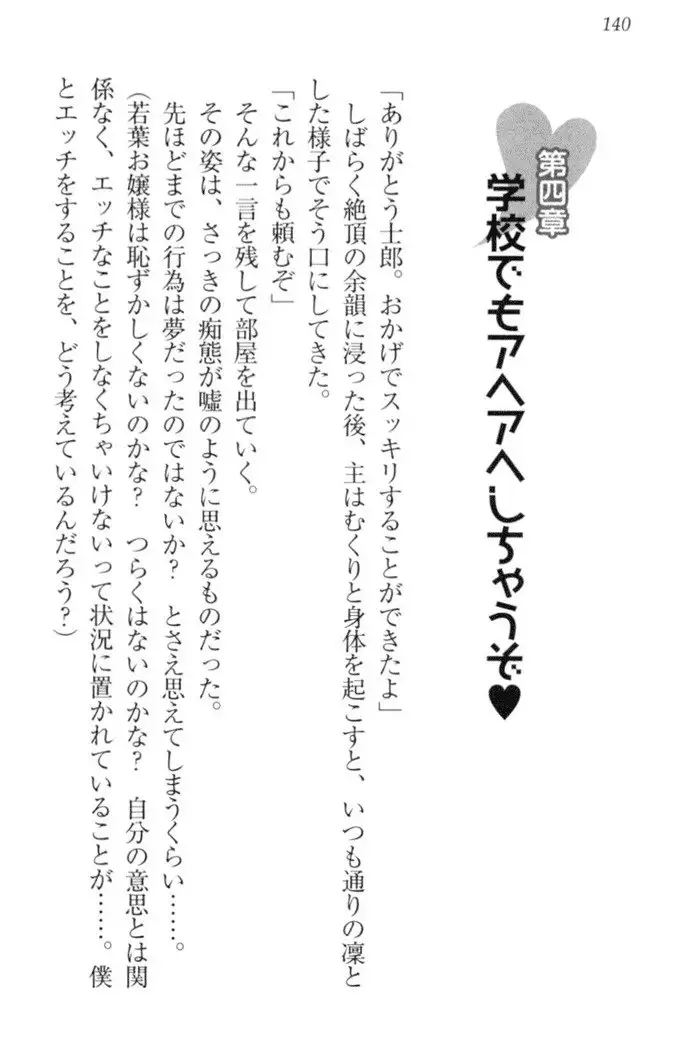 140
第四章
学校でもアヘアヘしちゃうぞ♥
「ありがとう士郎。おかげでスッキリすることができたよ」
しばらく絶頂の余韻に浸った後、主はむくりと身体を起こすと、いつも通りの凜と
した様子でそう口にしてきた。
「これからも頼むぞ」
そんな一言を残して部屋を出ていく。
その姿は、さっきの痴態が嘘のように思えるものだった。
先ほどまでの行為は夢だったのではないか？　とさえ思えてしまうくらい……。
（若葉お嬢様は恥ずかしくないのかな？　つらくはないのかな？　自分の意思とは関
係なく、エッチなことをしなくちゃいけないって状況に置かれていることが……。僕
とエッチをすることを、どう考えているんだろう？）